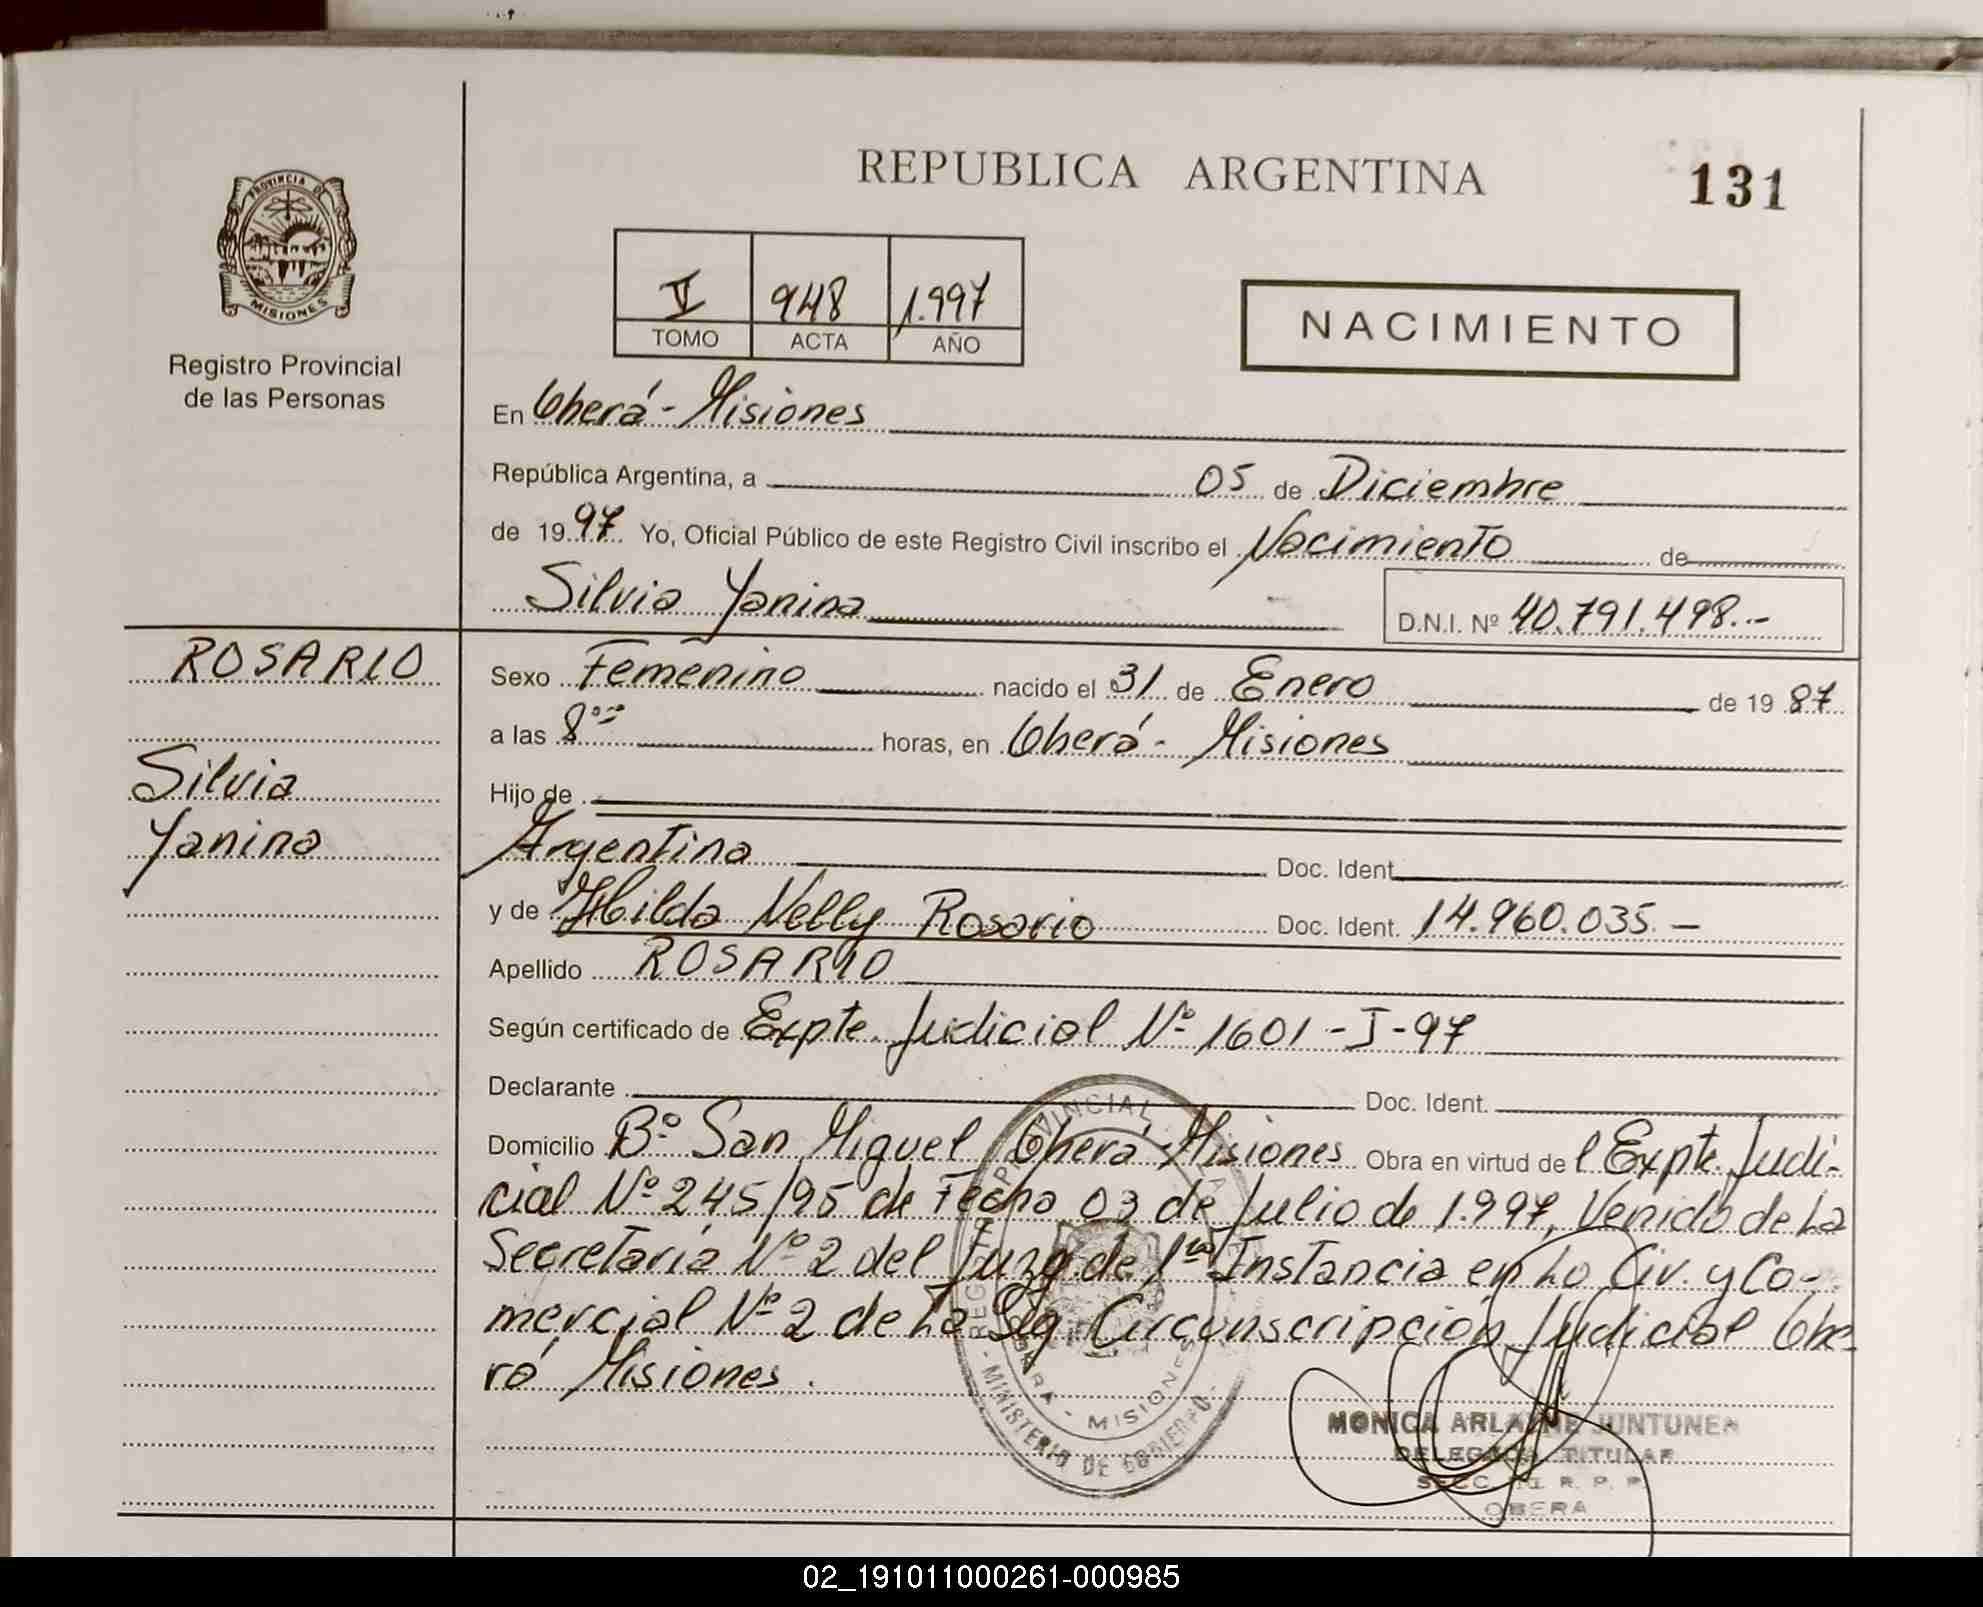 REPUBLICA ARGENTINA
131
PROVINCIA D
MISIONES
Registro Provincial
de las Personas
V 948 1.997
TOMO ACTA AÑO
NACIMIENTO
En Oberá - Misiones
República Argentina, a 05 de Diciembre
de 1997 Yo, Oficial Público de este Registro Civil inscribo el Nacimiento de
Silvia Yanina
D.N.I. Nº 40.791.498.-
ROSARIO
Silvia
Yanina
Sexo Femenino nacido el 31 de Enero de 1987
a las 8°° horas, en Oberá - Misiones
Hijo de
Argentina Doc. Ident.
y de Hilda Nelly Rosario Doc. Ident. 14.960.035.-
Apellido ROSARIO
Según certificado de Expte. Judicial Nº 1601-J-97
Declarante Doc. Ident.
Domicilio Bº San Miguel Oberá Misiones Obra en virtud del Expte. Judi-
cial Nº 245/95 de Fecha 03 de Julio de 1.997, Venido de La
Secretaría Nº 2 del Juzg. de 1ra Instancia en Lo Civ. y Co-
mercial Nº 2 de La Circunscripción Judicial Obe-
rá Misiones.
PROVINCIAL
OBERA - MISIONES
- MINISTERIO DE GOBIERNO -
MONICA ARLAINE JUNTUNEN
DELEGADA TITULAR
SECC. R. P. P.
OBERA
02_191011000261-000985